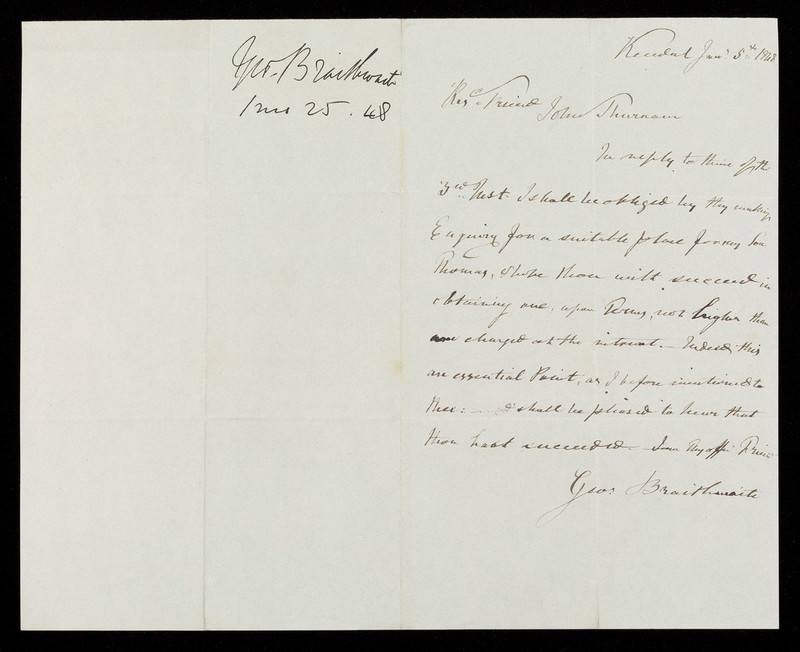 Geo. Braithwaite
1 mo 25. 48
Kendal Jany 5th 1848
Resd. Friend
John Thurnam
In reply to thine of the
3rd. Inst. I shall be obliged by thy making
Enquiry for a suitable place for my Son
Thomas, I hope thou wilt succeed in
obtaining one, upon Terms, not higher than
are charged at the retreat. Indeed this
an essential Point, as I before mentioned to
thee: — I shall be pleased to hear that
thou hast succeeded — I am thy affe. Friend
Geo: Braithwaite